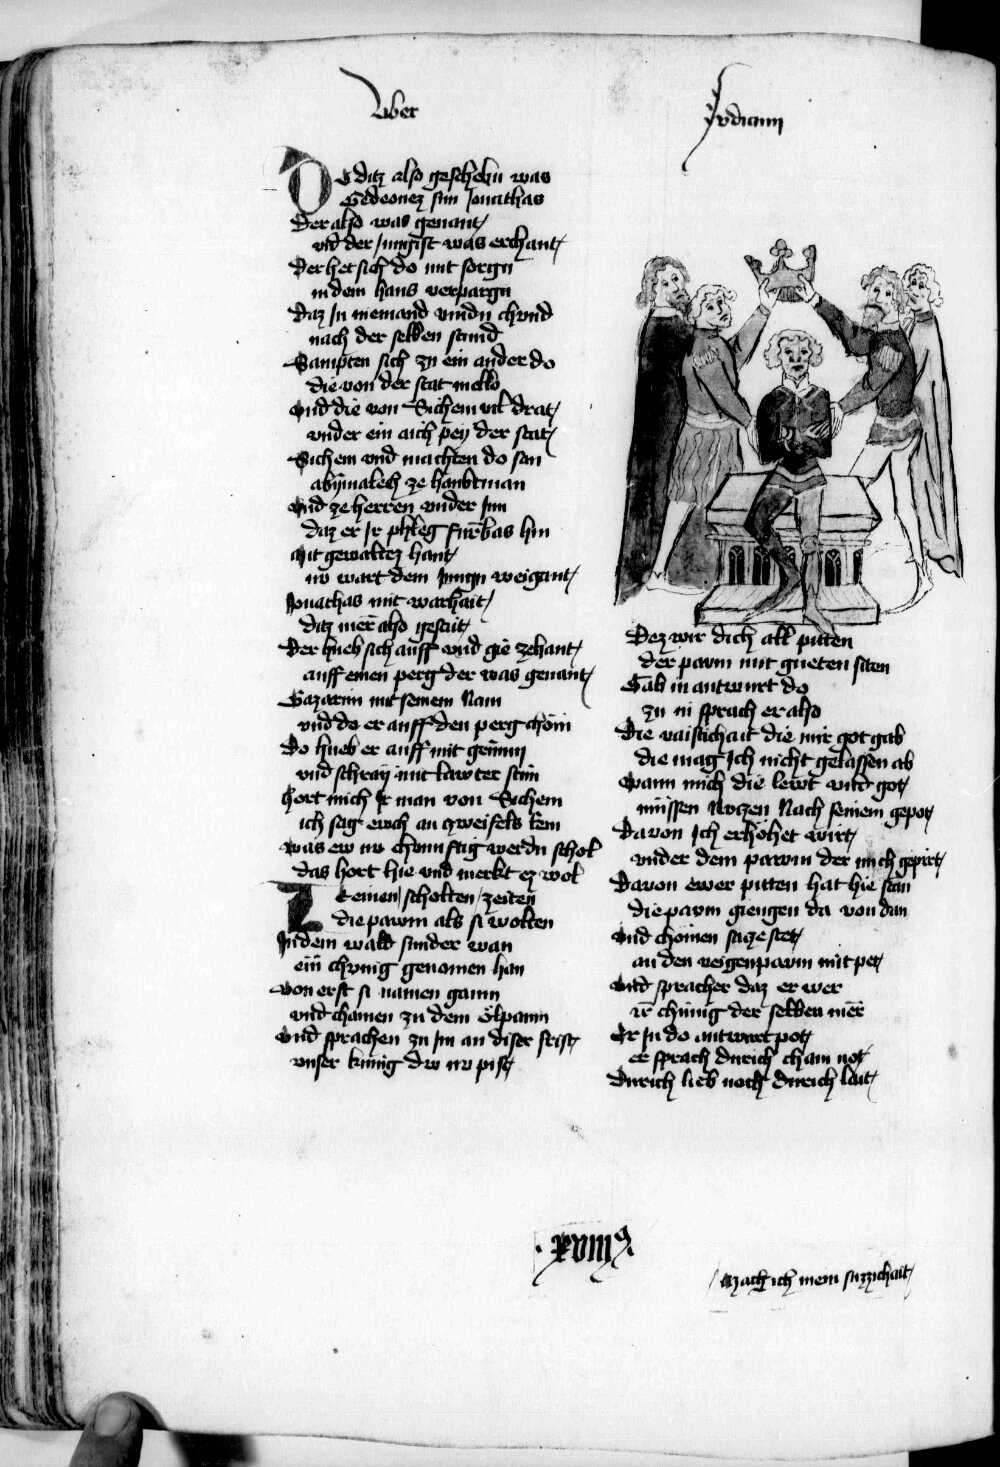 Liber
Judicum
Do ditz also geschehn was
Gedeonez sun Jonathas
Der also was genant
vnd der Jungist was erchant
Der het sich do mit sorgn
in dem haus verporgn
Daz In niemand vindn chvnd
nach der selben stund
Sampten sich zu ein ander do
die von der stat mello
Vnd die von Sichem vil drat
vnder ein aich pey der stat
Sichem vnd machten do san
abymalech ze haubtman
Vnd ze herren vnder Inn
daz er Ir phleg fürbas hin
Mit gewaltez hant
nv wart dem Jungn weigant
Jonathas mit warhait
ditz mer also geseit
Der hueb sich auff vnd gie zehant
auff einen perg der was genant
Gazarim mit seinem Nam
vnd do er auff den perg chom
Do hueb er auff mit grimm
vnd schray mit lawter stim
Hort mich Ir man von Sichem
ich sag ewch an zweifels lem
was ew nv chvnnftig werdn schol
das hort hie vnd merkt ez wol
Ze einen scholten zeiten
die pawm als si wolten
In dem wald sunder wan
ein chvnig genomen han
von erst si namen gaum
vnd chamen zu dem Ölpaum
Vnd sprachen zu Im an diser frist
vnser kunig dw nv pist
Dez wir dich all pitten
der pawm mit gueten siten
Gab in antwurt do
zu in sprach er also
Die vaistichait die mir got gab
die mag Ich nicht gelassen ab
Wann mich die lewt vnd got
müssen Nvczen Nach seinem gepot
Davon Ich erhöhet wirt
vnder dem pawm der mich gepirt
Davon ewer pitten hat hie stan
die pawm giengen da von dan
Vnd chomen sa ze stet
zu den veigenpawm mit pet
Vnd sprachen daz er wer
ir chünig der selben mer
Er In do antwurt pot
er sprach durich chain not
Durich lieb noch durich lait
xviiiꝰ
Mach ich mein suzzichait